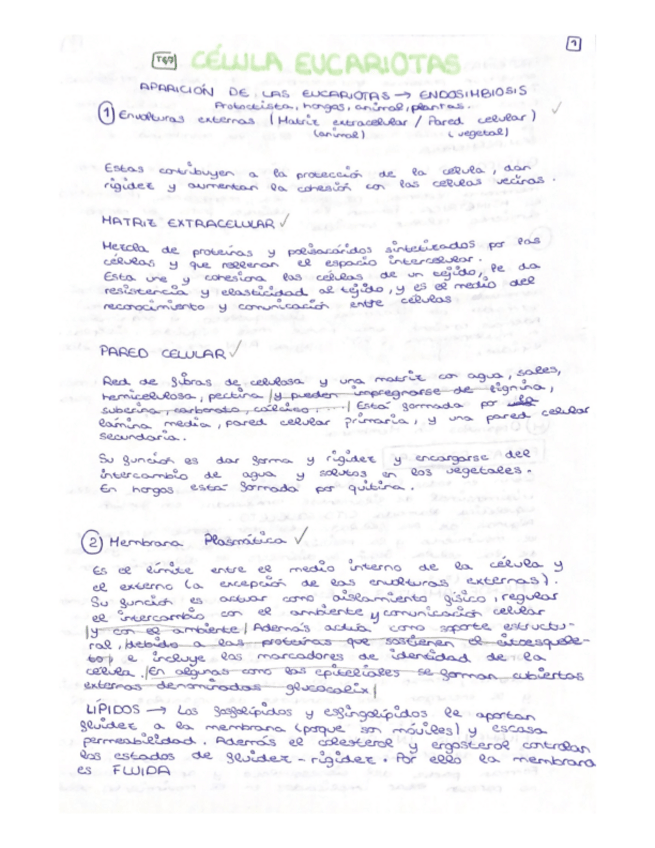 1
T6,7 CÉLULA EUCARIOTAS
APARICIÓN DE LAS EUCARIOTAS → ENDOSIMBIOSIS
Protoctista, hongos, animal, plantas.
① Envolturas externas (Matriz extracelular / Pared celular) ✓
(animal) (vegetal)
Estas contribuyen a la protección de la célula, dan
rigidez y aumentan la cohesión con las células vecinas.
MATRIZ EXTRACELULAR ✓
Mezcla de proteínas y polisacáridos sintetizados por las
células y que rellenan el espacio intercelular.
Esta une y cohesiona las células de un tejido, le da
resistencia y elasticidad al tejido, y es el medio del
reconocimiento y comunicación entre células
PARED CELULAR ✓
Red de fibras de celulosa y una matriz con agua, sales,
hemicelulosa, pectina |y pueden impregnarse de lignina,
suberina, carbonato, cálcico....| Está formada por la
lámina media, pared celular primaria, y una pared celular
secundaria.
Su función es dar forma y rigidez y encargarse del
intercambio de agua y solutos en los vegetales.
En hongos está formada por quitina.
② Membrana Plasmática ✓
Es el límite entre el medio interno de la célula y
el externo (a excepción de las envolturas externas).
Su función es actuar como aislamiento físico, regular
el intercambio con el ambiente y comunicación celular
|y con el ambiente| Además actúa como soporte estructu-
ral, |debido a las proteínas que sostienen el citoesquele-
to| e incluye los marcadores de identidad de la
célula. |En algunas como las epiteliales se forman cubiertas
externas denominadas glucocalix|
LÍPIDOS → Los fosfolípidos y esfingolípidos le aportan
fluidez a la membrana (porque son móviles) y escasa
permeabilidad. Además el colesterol y ergosterol controlan
los estados de fluidez - rigidez. Por ello la membrana
es FLUIDA